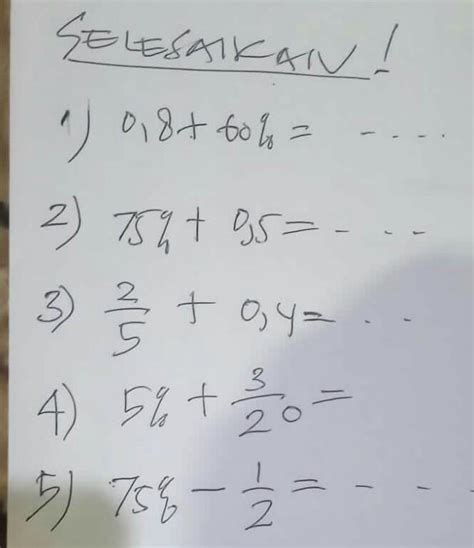 SELESAIKAN!
1) 0,8 + 60% = ....
2) 75% + 0,5 = - ...
3) 2/5 + 0,4 = ...
4) 5% + 3/20 =
5) 75% - 1/2 = - - -